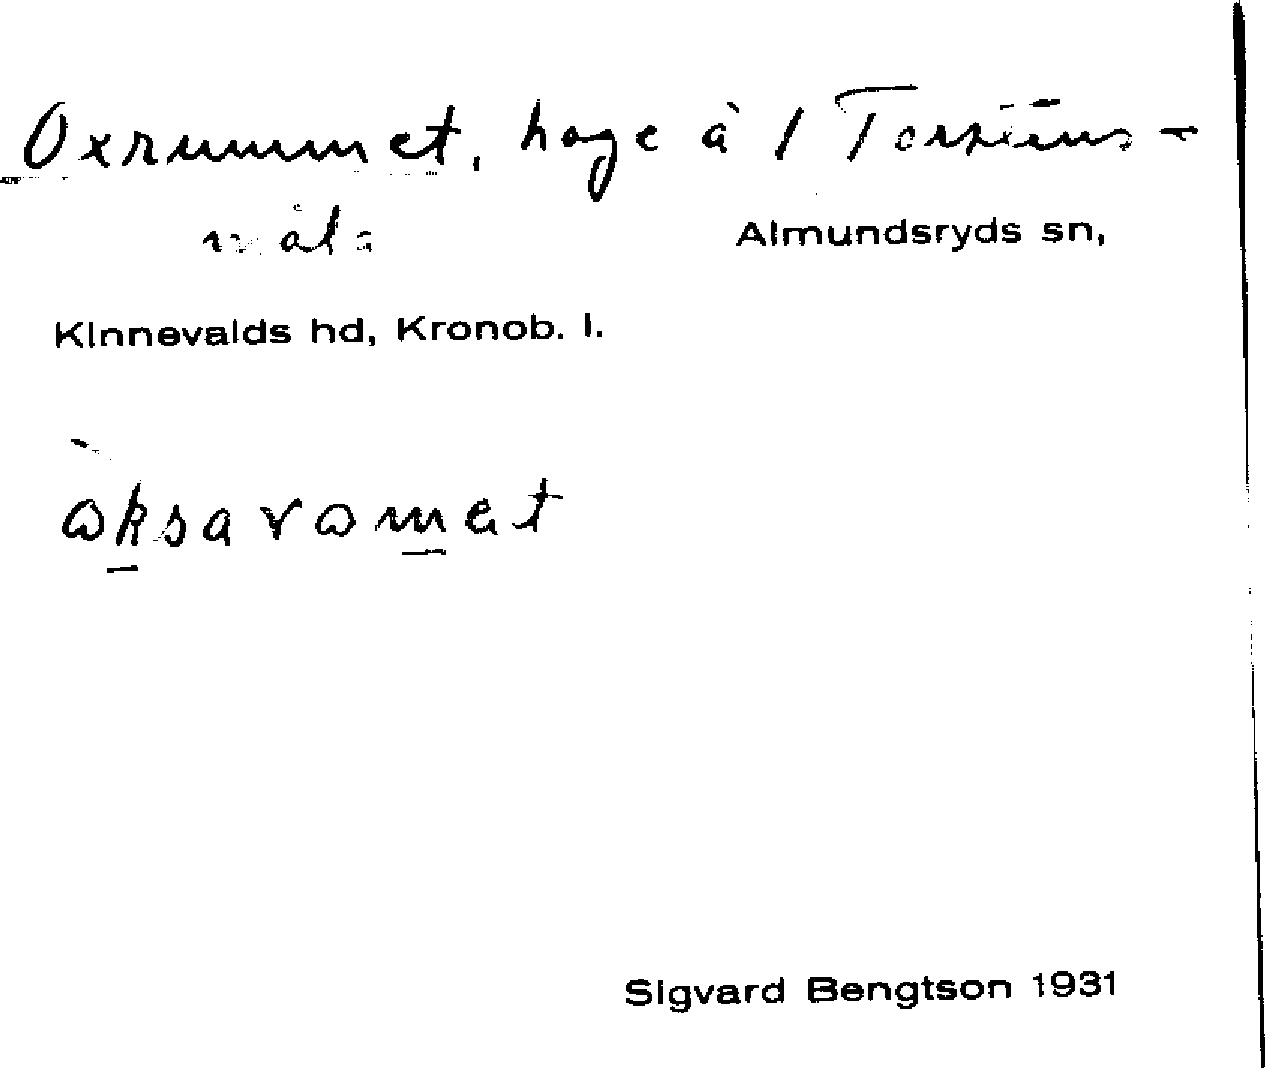 Oxrummet, hage å 1
måla
Almundsryds sn,
Kinnevalds hd, Kronob. l.
Sigvard Bengtson 1931